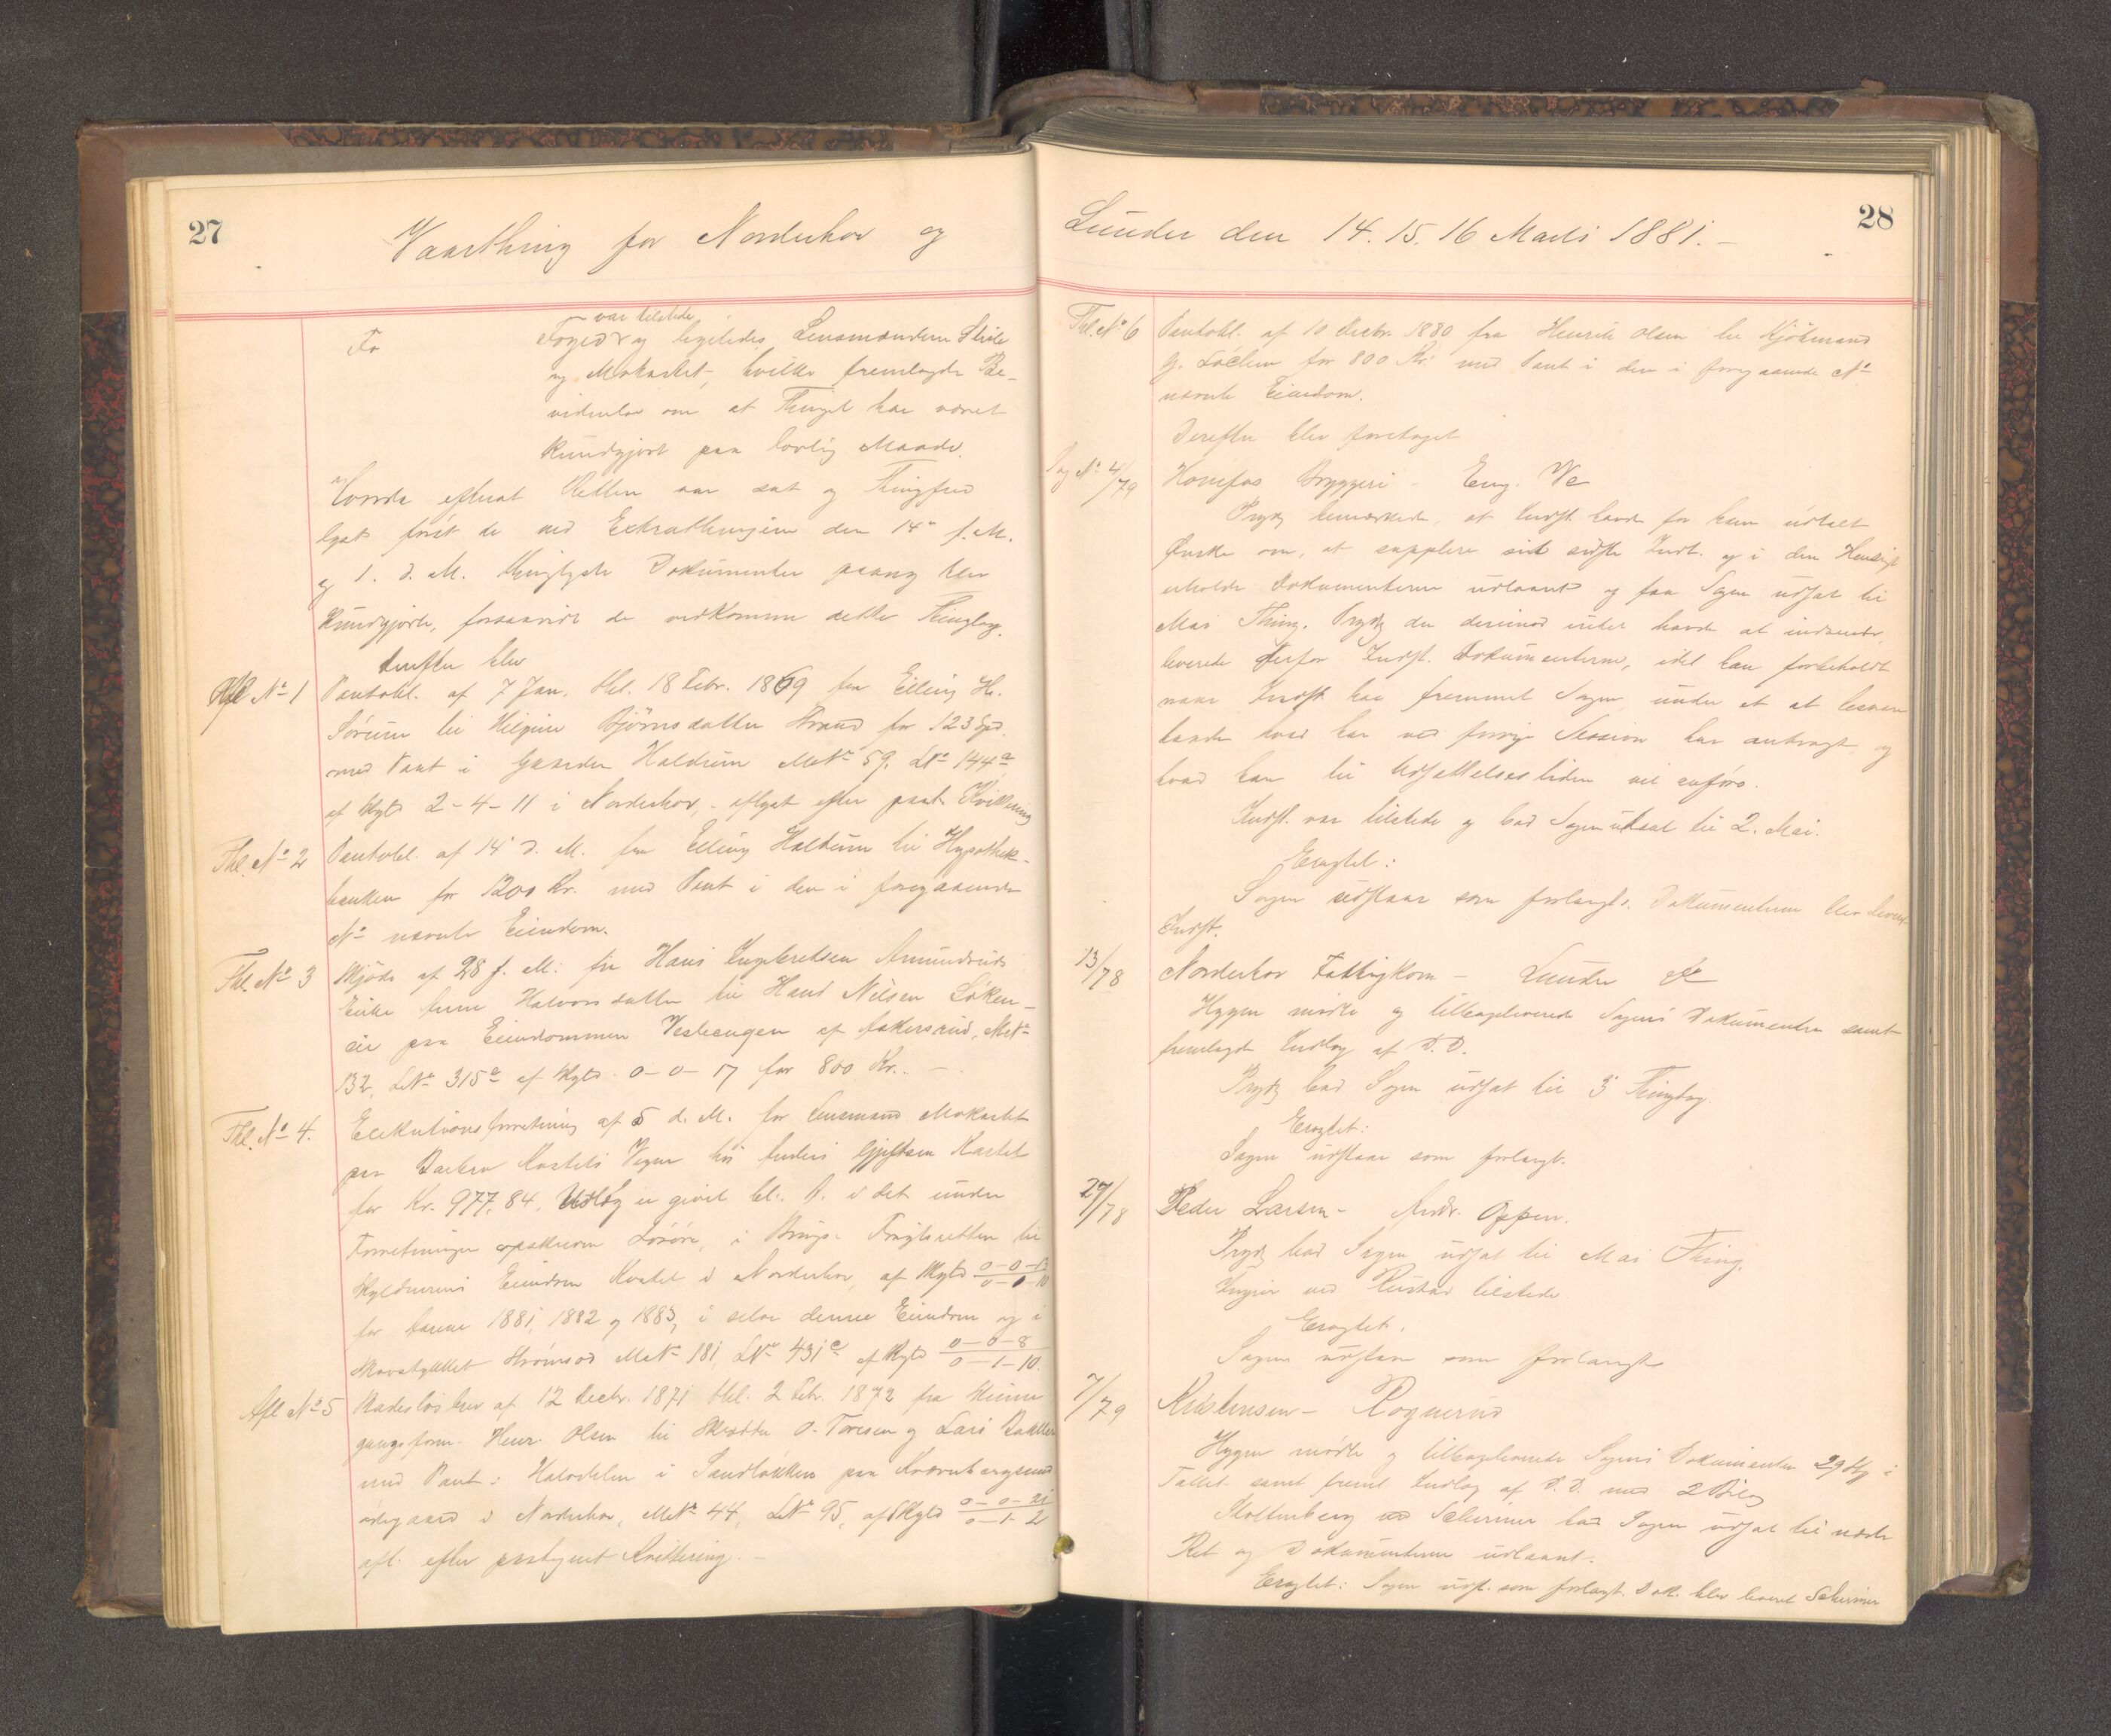 27
Vaarthing for Norderhov og
var tilstede
Fo Foged og ligeledes Lensmændene Strøm
og Mokastet, hvilke fremlagde Be-
vidnelse om at Thinget har været
kundgjort paa lovlig Maade.
efterat Retten var sat og Thingfred
lyst først de ved Extrathingene den 14de f. M.
og 1. d. M. thinglyste Dokumenter paany blev
kundgjorte, forsaavidt de vedkomme dette Thinglag.
derefter blev
Afl No 1 Pantobl. af 7 Jan. thl. 18 Febr. 1869 fra Elling H.
Sørum til Helgine Bjørnsdatter Strand for 123 Spd.
med Pant i Gaarden Haldum MNo 59, LNo 144a
af Skyld 2-4-11 i Norderhov, aflyst efter paat. Kvittering
Thl. No 2 Pantobl. af 14 d. M. fra Elling Haldum til Hypothek-
banken for 1200 Kr. med Pant i den i foregaaende
No nævnte Eiendom.
Thl. No 3 Skjøde af 28 f. M. fra Hans Engebretsen Amundruds
Enke Halvorsdatter til Hans Nilsen Løken-
eie paa Eiendommen af MNo
132, LNo 315a af Skyld 0-0-17 for 800 Kr. -
Thl. No 4. Exekutionsforretning af 5 d. M. for Lensmand Mokastet
paa Vegne hos Anders
for Kr. 977,84. Udlæg er givet bl. A. i det under
Forretningen i Brugs-
Skyldnerens Eiendom i Norderhov, af Skyld 0-0-13
0-0-10
for Aarene 1881, 1882 og 1883, i selve denne Eiendom og i
Skovstykket Strømsod MNo 181, LNo 431c af Skyld 0-0-8
0-1-10.
Afl No 5 Skadesløsbrev af 12 Decbr. 1871 thl. 2 Febr. 1872 fra
gangsform. Henr. Olsen til O. Toresen og Lars
med Pant: Halvdelen i Sandbakken paa
ødegaard i Norderhov, MNo 44, LNo 95, af Skyld 0-0-21
0-1-2
afl. efter paategnet Kvittering. -
28
Lunder den 14. 15. 16 Marts 1881. -
Thl. No 6 Pantobl. af 10 Decbr. 1880 fra Henrik Olsen til Kjøbmand
G. Løchen for 800 Kr. med Pant i den i foregaaende No
nævnte Eiendom.
Derefter blev foretaget
Sag No 4/79 Hønefos Bryggeri - Eng. We
Prydz bemærkede, at Indst. havde for ham udtalt
Ønske om, at supplere sit sidste Indl. og i den Hensigt
erholde Dokumenterne udlaant og faa Sagen udsat til
Mai Thing. Prydz der derimod intet havde at indvende,
leverede derfor Indst. Dokumenterne, idet han forbeholdt
naar Indst. har fremmet Sagen under et at besvare
baade hvad han ved forrige Session har anbragt og
hvad han til Udsættelsestiden vil anføre.
Indst. var tilstede og bad Sagen udsat til 2. Mai.
Eragtet:
Sagen udstaar som forlangt. Dokumenterne blev leveret
Indst.
13/78 Norderhov Fattigkom - Lunder do
Hygen mødte og tilbageleverede Sagens Dokumenter samt
fremlagde Indlæg af D. D.
Prydz bad Sagen udsat til 3 Thingdag.
Eragtet:
Sagen udstaar som forlangt.
27/78 Peder Larsen - Andr. Oppen.
Prydz bad Sagen udsat til Mai Thing.
Ingier ved Rustad tilstede
Eragtet.
Sagen udstaar som forlangt
7/79 Kristensen - Rognerud
Hygen mødte og tilbageleverede Sagens Dokumenter 29 Stk i
Tallet samt freml. Indlæg af D. D. med 2 Bilag
Stoltenberg ved Schirmer bad Sagen udsat til næste
Ret og Dokumenterne udlaant.
Eragtet: Sagen udst. som forlangt. Dok. blev leveret Schirmer